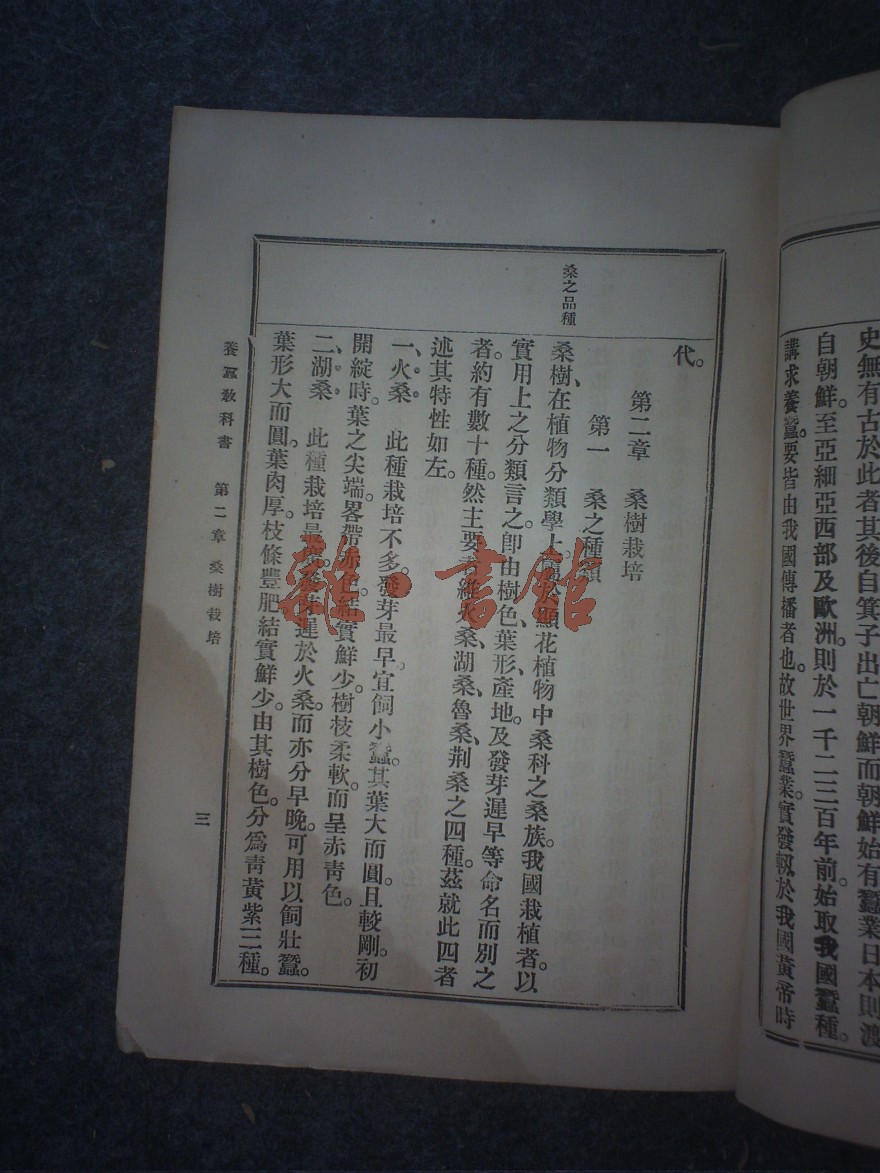 史無有古於此者其後自箕子出亡朝鮮而朝鮮始有蠶業日本則渡
自朝鮮。至亞細亞西部及歐洲。則於一千二三百年前始取我國蠶種。
講求養蠶。要皆由我國傳播者也。故世界蠶業。實發軔於我國黃帝時
代。
第二章　桑樹栽培
第一　桑之種類
桑之品種
桑樹、在植物分類學上。屬於顯花植物中桑科之桑族。我國栽植者。以
實用上之分類言之。卽由樹色、葉形、產地。及發芽遲早等命名而別之
者。約有數十種。然主要者。維火桑、湖桑、魯桑、荆桑之四種。茲就此四者
述其特性如左。
一、火桑　此種栽培不多。發芽最早。宜飼小蠶。其葉大而圓。且較剛。初
開綻時。葉之尖端。畧帶赤色。結實鮮少。樹枝柔軟。而呈赤青色。
二、湖桑　此種栽培最廣。發芽遲於火桑。而亦分早晚。可用以飼壯蠶。
葉形大而圓。葉肉厚。枝條豐肥。結實鮮少。由其樹色。分爲靑黃紫三種。
養蠶教科書　第二章 桑樹栽培
三
雜·書館